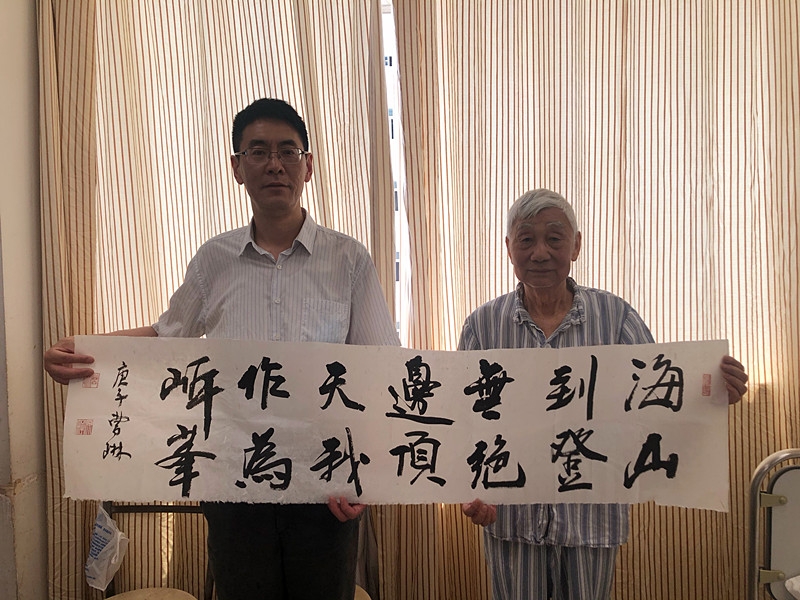 海到無邊天作岸
山登絕頂我為峯
庚子